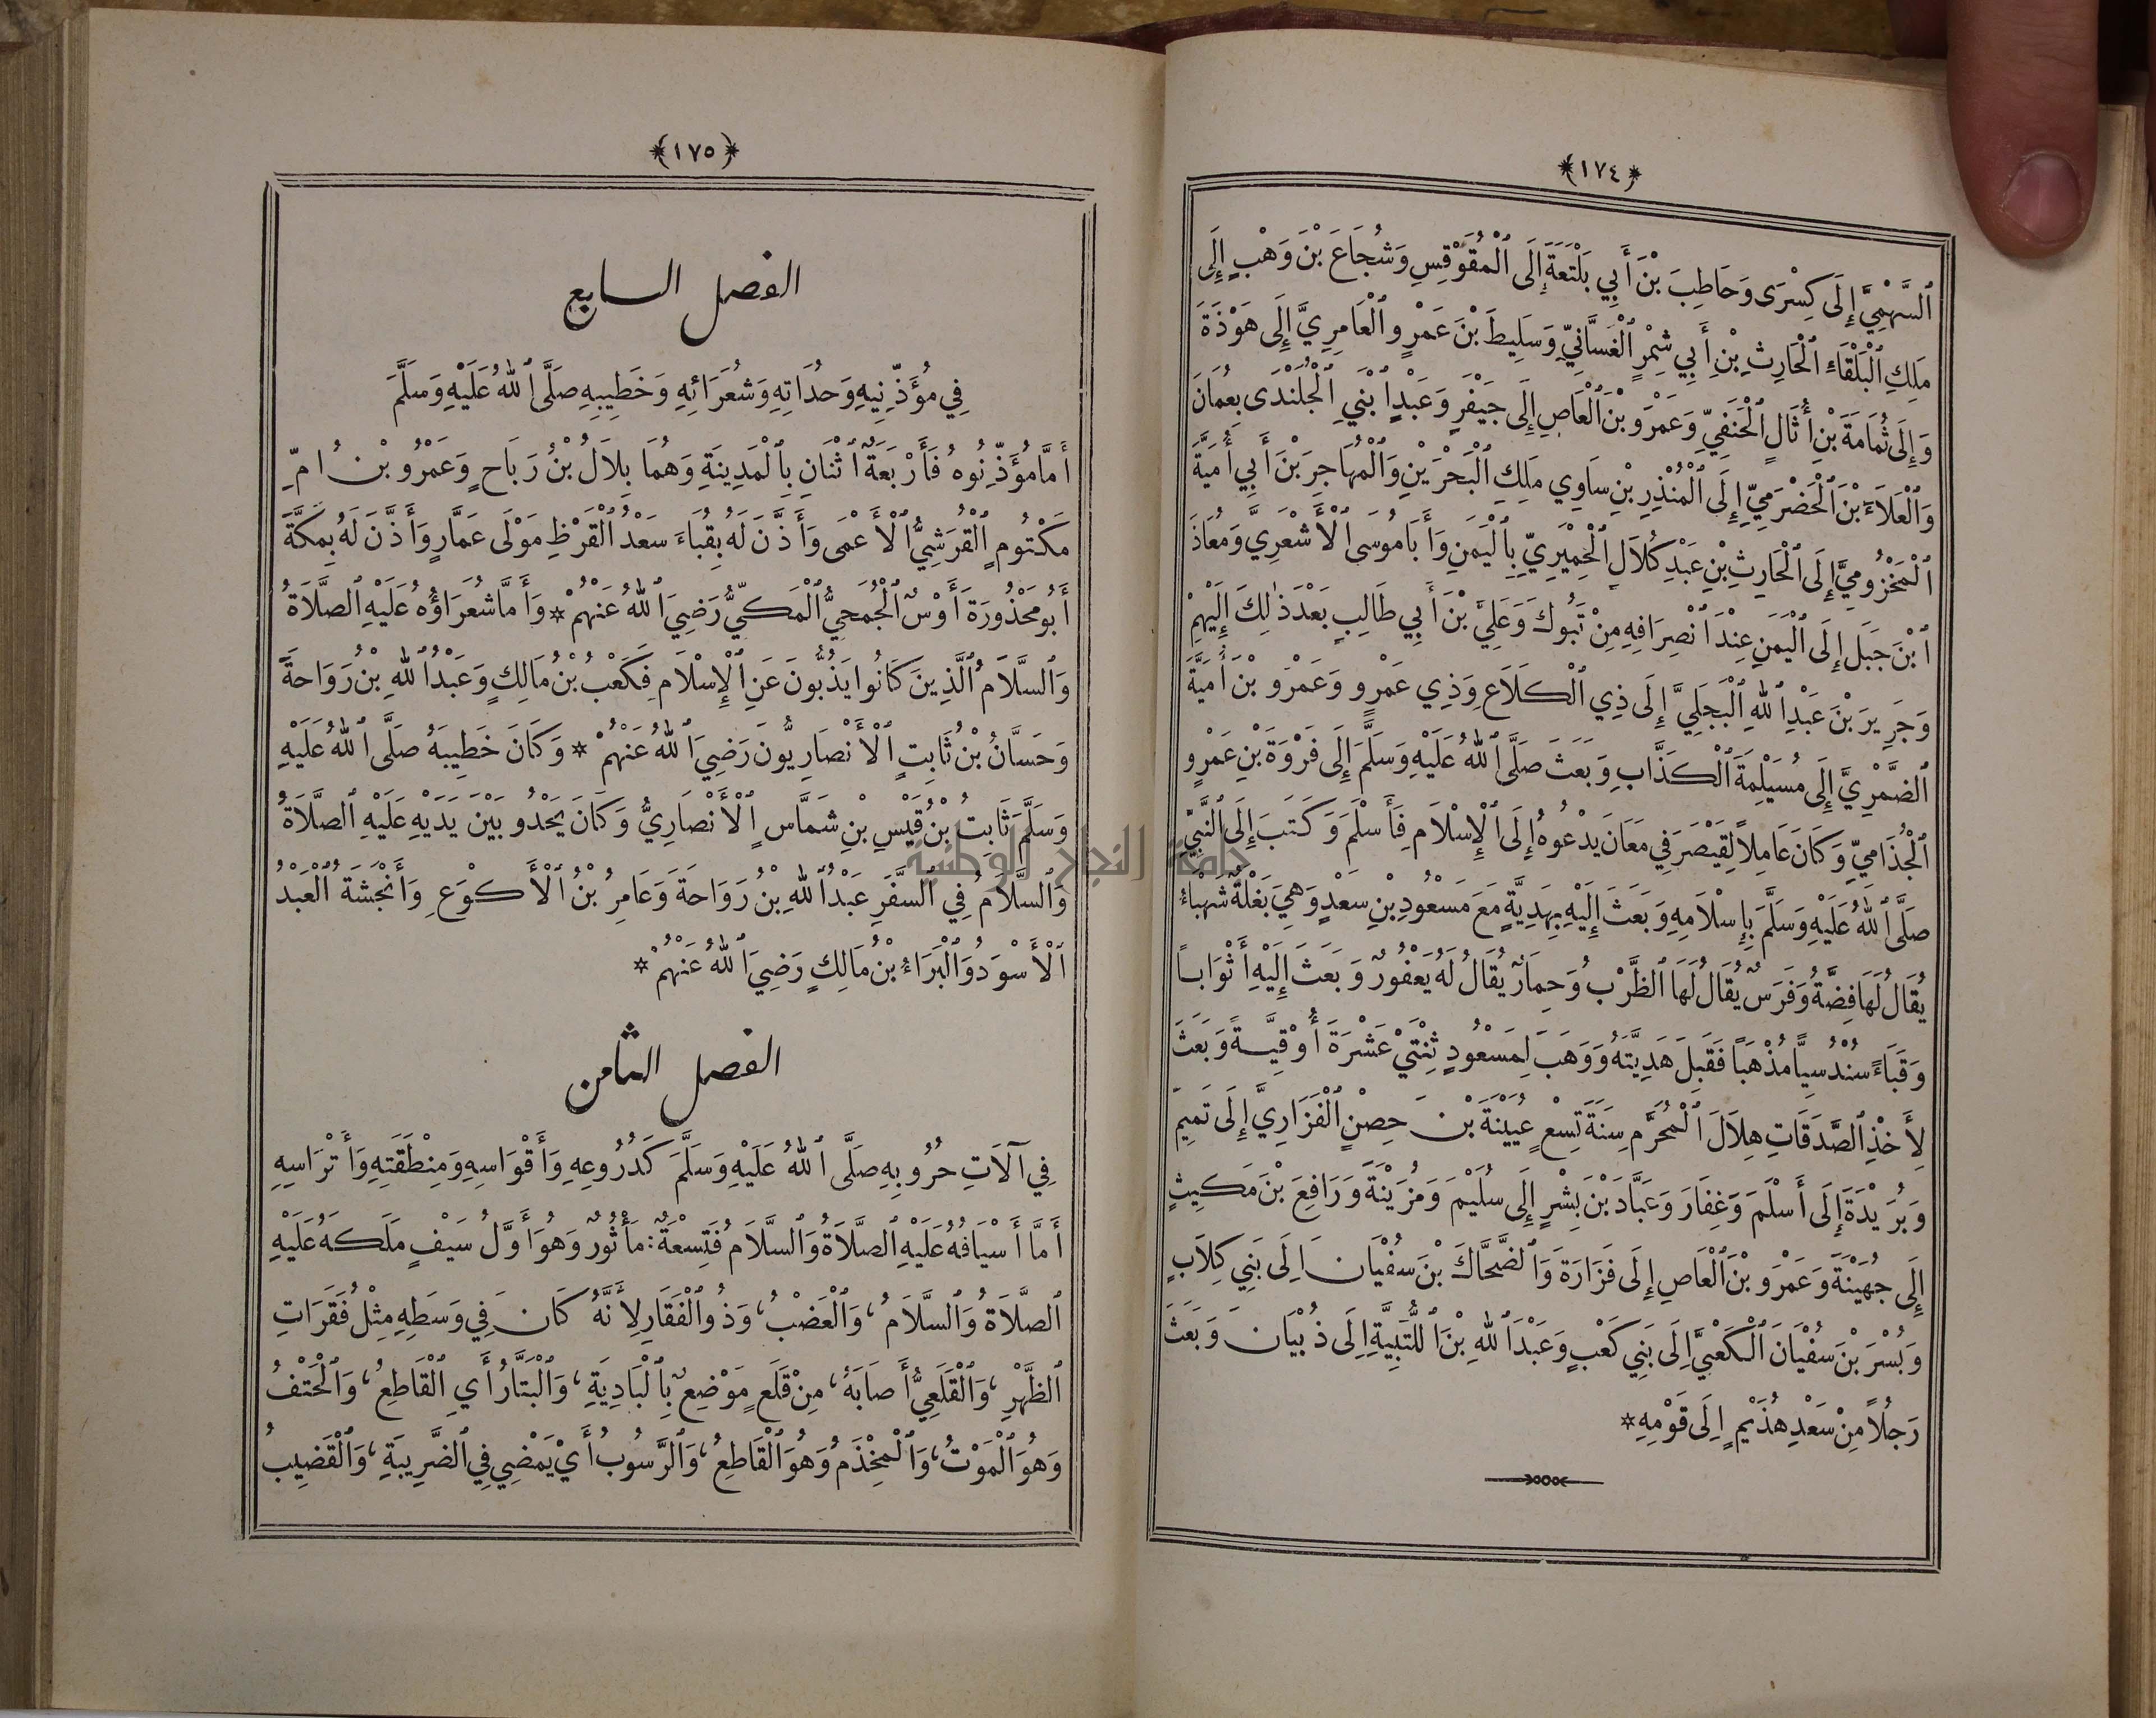 ﴿١٧٤﴾
ٱلسَّهْمِيَّ إِلَى كِسْرَى وَحَاطِبَ بْنَ أَبِي بَلْتَعَةَ إِلَى ٱلْمُقَوْقِسِ وَشُجَاعَ بْنَ وَهْبٍ إِلَى
مَلِكِ ٱلْبَلْقَاءِ ٱلْحَارِثِ بْنِ أَبِي شِمْرٍ ٱلْغَسَّانِيِّ وَسَلِيطَ بْنَ عَمْرٍو ٱلْعَامِرِيَّ إِلَى هَوْذَةَ
وَإِلَى ثُمَامَةَ بْنِ أُثَالٍ ٱلْحَنَفِيِّ وَعَمْرَو بْنَ ٱلْعَاصِ إِلَى جَيْفَرٍ وَعَبْدٍ ٱبْنَيِ ٱلْجُلَنْدَى بِعُمَانَ
وَٱلْعَلَاءَ بْنَ ٱلْحَضْرَمِيِّ إِلَى ٱلْمُنْذِرِ بْنِ سَاوِي مَلِكِ ٱلْبَحْرَيْنِ وَٱلْمُهَاجِرَ بْنَ أَبِي أُمَيَّةَ
ٱلْمَخْزُومِيَّ إِلَى ٱلْحَارِثِ بْنِ عَبْدِ كُلَالٍ ٱلْحِمْيَرِيِّ بِٱلْيَمَنِ وَأَبَا مُوسَى ٱلْأَشْعَرِيَّ وَمُعَاذَ
ٱبْنَ جَبَلٍ إِلَى ٱلْيَمَنِ عِنْدَ ٱنْصِرَافِهِ مِنْ تَبُوكَ وَعَلِيَّ بْنَ أَبِي طَالِبٍ بَعْدَ ذٰلِكَ إِلَيْهِمْ
وَجَرِيرَ بْنَ عَبْدِ ٱللهِ ٱلْبَجَلِيَّ إِلَى ذِي ٱلْكَلَاعِ وَذِي عَمْرٍو وَعَمْرَو بْنَ أُمَيَّةَ
ٱلضَّمْرِيَّ إِلَى مُسَيْلِمَةَ ٱلْكَذَّابِ وَبَعَثَ صَلَّى ٱللهُ عَلَيْهِ وَسَلَّمَ إِلَى فَرْوَةَ بْنِ عَمْرٍو
ٱلْجُذَامِيِّ وَكَانَ عَامِلاً لِقَيْصَرَ فِي مَعَانَ يَدْعُوهُ إِلَى ٱلْإِسْلَامِ فَأَسْلَمَ وَكَتَبَ إِلَى ٱلنَّبِيِّ
صَلَّى ٱللهُ عَلَيْهِ وَسَلَّمَ بِإِسْلَامِهِ وَبَعَثَ إِلَيْهِ بِهَدِيَّةٍ مَعَ مَسْعُودِ بْنِ سَعْدٍ وَهِيَ بَغْلَةٌ شَهْبَاءُ
يُقَالُ لَهَا فِضَّةُ وَفَرَسٌ يُقَالُ لَهَا ٱلظَّرْبُ وَحِمَارٌ يُقَالُ لَهُ يَعْفُورٌ وَبَعَثَ إِلَيْهِ أَثْوَاباً
وَقَبَاءً سُنْدُسِيًّا مُذْهَباً فَقَبِلَ هَدِيَّتَهُ وَوَهَبَ لِمَسْعُودٍ ثِنْتَيْ عَشْرَةَ أُوْقِيَّةً وَبَعَثَ
لِأَخْذِ ٱلصَّدَقَاتِ هِلَالَ ٱلْمُحَرَّمِ سَنَةَ تِسْعٍ عُيَيْنَةَ بْنَ حِصْنٍ ٱلْفَزَارِيَّ إِلَى تَمِيمٍ
وَبُرَيْدَةَ إِلَى أَسْلَمَ وَغِفَارَ وَعَبَّادَ بْنَ بِشْرٍ إِلَى سُلَيْمَ وَمُزَيْنَةَ وَرَافِعَ بْنَ مَكِيثٍ
إِلَى جُهَيْنَةَ وَعَمْرَو بْنَ ٱلْعَاصِ إِلَى فَزَارَةَ وَٱلضَّحَّاكَ بْنَ سُفْيَانَ إِلَى بَنِي كِلَابٍ
وَبُسْرَ بْنَ سُفْيَانَ ٱلْكَعْبِيَّ إِلَى بَنِي كَعْبٍ وَعَبْدَ ٱللهِ بْنَ ٱللُّتْبِيَّةِ إِلَى ذُبْيَانَ وَبَعَثَ
رَجُلاً مِنْ سَعْدِ هُذَيْمٍ إِلَى قَوْمِهِ*
﴿١٧٥﴾
الفصل السابع
فِي مُؤَذِّنِيهِ وَحُدَاتِهِ وَشُعَرَائِهِ وَخَطِيبِهِ صَلَّى ٱللهُ عَلَيْهِ وَسَلَّمَ
أَمَّا مُؤَذِّنُوهُ فَأَرْبَعَةٌ ٱثْنَانِ بِٱلْمَدِينَةِ وَهُمَا بِلَالُ بْنُ رَبَاحٍ وَعَمْرُو بْنُ أُمِّ
مَكْتُومٍ ٱلْقُرَشِيُّ ٱلْأَعْمَى وَأَذَّنَ لَهُ بِقُبَاءَ سَعْدُ ٱلْقَرَظِ مَوْلَى عَمَّارٍ وَأَذَّنَ لَهُ بِمَكَّةَ
أَبُو مَحْذُورَةَ أَوْسٌ ٱلْجُمَحِيُّ ٱلْمَكِّيُّ رَضِيَ ٱللهُ عَنْهُمْ * وَأَمَّا شُعَرَاؤُهُ عَلَيْهِ ٱلصَّلَاةُ
وَٱلسَّلَامُ ٱلَّذِينَ كَانُوا يَذُبُّونَ عَنِ ٱلْإِسْلَامِ فَكَعْبُ بْنُ مَالِكٍ وَعَبْدُ ٱللهِ بْنُ رَوَاحَةَ
وَحَسَّانُ بْنُ ثَابِتٍ ٱلْأَنْصَارِيُّونَ رَضِيَ ٱللهُ عَنْهُمْ * وَكَانَ خَطِيبَهُ صَلَّى ٱللهُ عَلَيْهِ
وَسَلَّمَ ثَابِتُ بْنُ قَيْسِ بْنِ شَمَّاسٍ ٱلْأَنْصَارِيُّ وَكَانَ يَحْدُو بَيْنَ يَدَيْهِ عَلَيْهِ ٱلصَّلَاةُ
وَٱلسَّلَامُ فِي ٱلسَّفَرِ عَبْدُ ٱللهِ بْنُ رَوَاحَةَ وَعَامِرُ بْنُ ٱلْأَكْوَعِ وَأَنْجَشَةُ ٱلْعَبْدُ
ٱلْأَسْوَدُ وَٱلْبَرَاءُ بْنُ مَالِكٍ رَضِيَ ٱللهُ عَنْهُمْ *
الفصل الثامن
فِي آلَاتِ حُرُوبِهِ صَلَّى ٱللهُ عَلَيْهِ وَسَلَّمَ كَدُرُوعِهِ وَأَقْوَاسِهِ وَمِنْطَقَتِهِ وَأَتْرَاسِهِ
أَمَّا أَسْيَافُهُ عَلَيْهِ ٱلصَّلَاةُ وَٱلسَّلَامُ فَتِسْعَةٌ: مَأْثُورٌ وَهُوَ أَوَّلُ سَيْفٍ مَلَكَهُ عَلَيْهِ
ٱلصَّلَاةُ وَٱلسَّلَامُ، وَٱلْعَضْبُ، وَذُو ٱلْفَقَارِ لِأَنَّهُ كَانَ فِي وَسَطِهِ مِثْلُ فَقَرَاتِ
ٱلظَّهْرِ، وَٱلْقَلَعِيُّ أَصَابَهُ، مِنْ قَلَعٍ مَوْضِعٌ بِٱلْبَادِيَةِ، وَٱلْبَتَّارُ أَيِ ٱلْقَاطِعُ، وَٱلْحَتْفُ
وَهُوَ ٱلْمَوْتُ، وَٱلْمِخْذَمُ وَهُوَ ٱلْقَاطِعُ، وَٱلرَّسُوبُ أَيْ يَمْضِي فِي ٱلضَّرِيبَةِ، وَٱلْقَضِيبُ
جامعة النجاح الوطنية